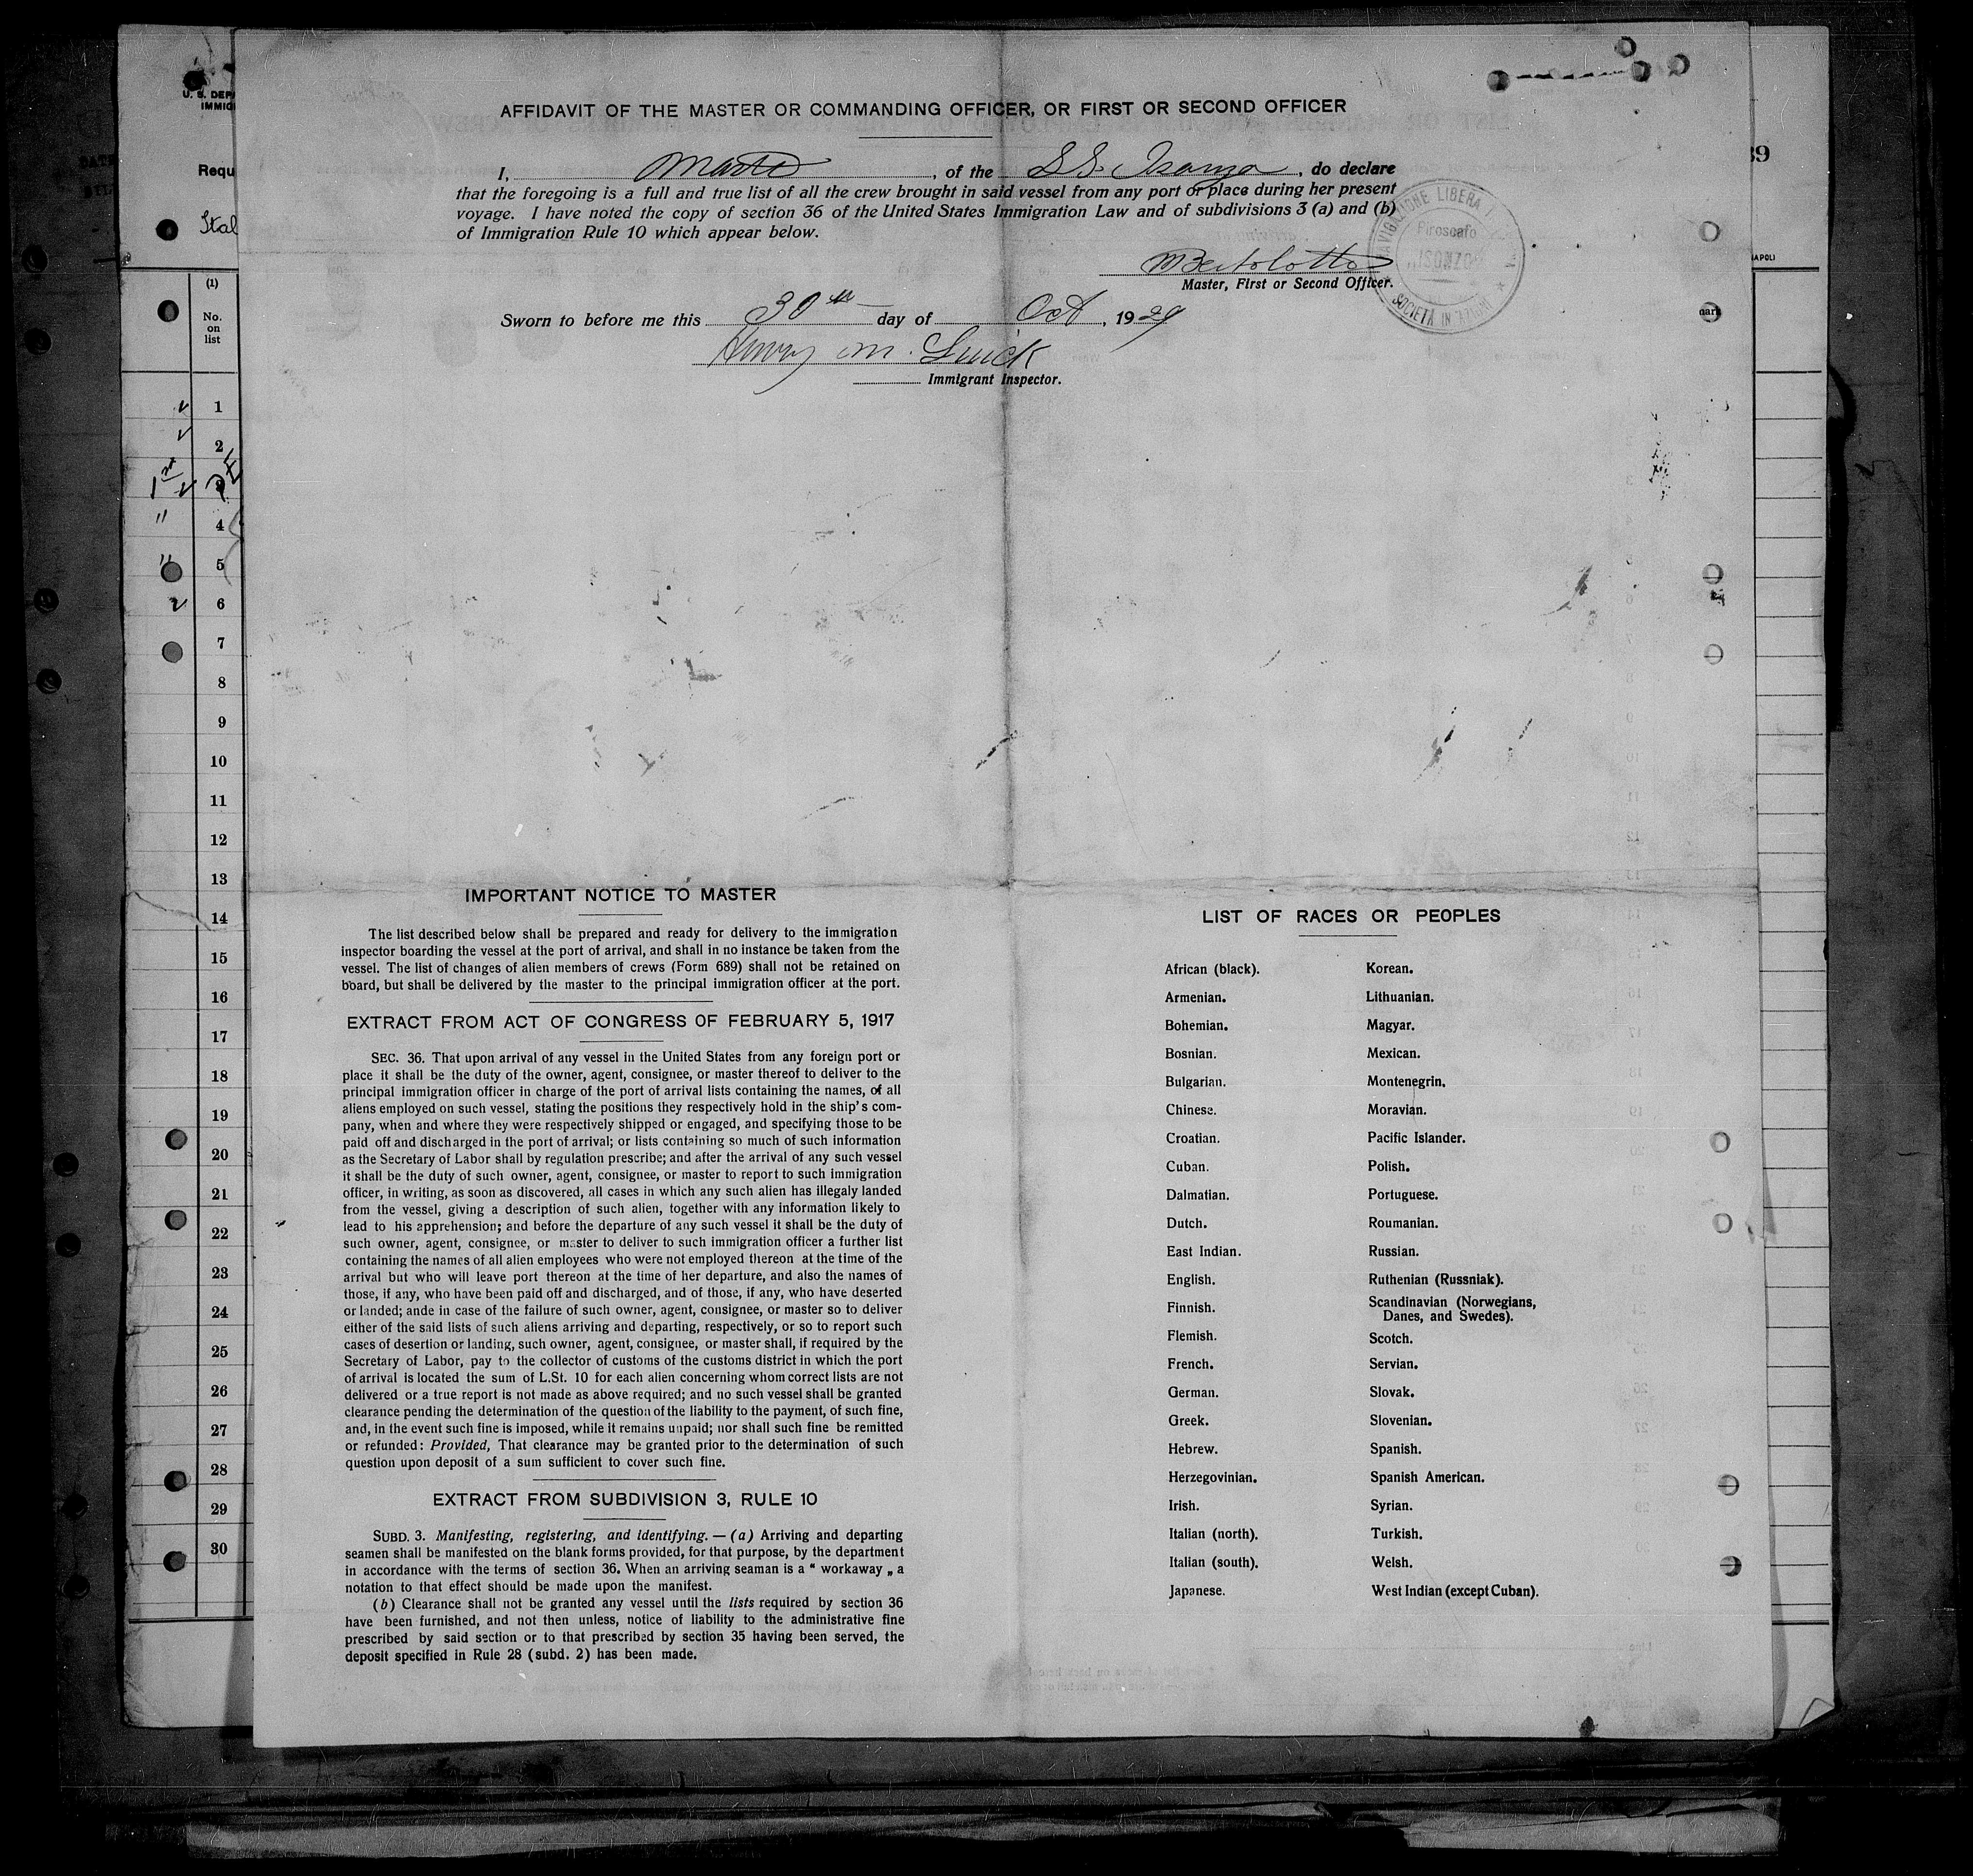 AFFIDAVIT OF THE MASTER OR COMMANDING OFFICER, OR FIRST OR SECOND OFFICER
I, Master, of the SS. Isonzo, do declare
that the foregoing is a full and true list of all the crew brought in said vessel from any port or place during her present
voyage. I have noted the copy of section 36 of the United States Immigration Law and of subdivisions 3 (a) and (b)
of Immigration Rule 10 which appear below.
MBertolotto
Master, First or Second Officer.
NAVIGAZIONE LIBERA
Piroscafo
"ISONZO"
SOCIETÀ IN AZIONI
Sworn to before me this 30th day of Oct, 1929
Henry M.
Immigrant Inspector.
U. S. DEPA
IMMIG
Requ
Ital
39
NAPOLI
mark
(1)
No.
on
list
1
2
3
4
5
6
7
8
9
10
11
12
13
14
15
16
17
18
19
20
21
22
23
24
25
26
27
28
29
30
IMPORTANT NOTICE TO MASTER
The list described below shall be prepared and ready for delivery to the immigration
inspector boarding the vessel at the port of arrival, and shall in no instance be taken from the
vessel. The list of changes of alien members of crews (Form 689) shall not be retained on
board, but shall be delivered by the master to the principal immigration officer at the port.
EXTRACT FROM ACT OF CONGRESS OF FEBRUARY 5, 1917
SEC. 36. That upon arrival of any vessel in the United States from any foreign port or
place it shall be the duty of the owner, agent, consignee, or master thereof to deliver to the
principal immigration officer in charge of the port of arrival lists containing the names, of all
aliens employed on such vessel, stating the positions they respectively hold in the ship's com-
pany, when and where they were respectively shipped or engaged, and specifying those to be
paid off and discharged in the port of arrival; or lists containing so much of such information
as the Secretary of Labor shall by regulation prescribe; and after the arrival of any such vessel
it shall be the duty of such owner, agent, consignee, or master to report to such immigration
officer, in writing, as soon as discovered, all cases in which any such alien has illegaly landed
from the vessel, giving a description of such alien, together with any information likely to
lead to his apprehension; and before the departure of any such vessel it shall be the duty of
such owner, agent, consignee, or master to deliver to such immigration officer a further list
containing the names of all alien employees who were not employed thereon at the time of the
arrival but who will leave port thereon at the time of her departure, and also the names of
those, if any, who have been paid off and discharged, and of those, if any, who have deserted
or landed; ande in case of the failure of such owner, agent, consignee, or master so to deliver
either of the said lists of such aliens arriving and departing, respectively, or so to report such
cases of desertion or landing, such owner, agent, consignee, or master shall, if required by the
Secretary of Labor, pay to the collector of customs of the customs district in which the port
of arrival is located the sum of L.St. 10 for each alien concerning whom correct lists are not
delivered or a true report is not made as above required; and no such vessel shall be granted
clearance pending the determination of the question of the liability to the payment, of such fine,
and, in the event such fine is imposed, while it remains unpaid; nor shall such fine be remitted
or refunded: Provided, That clearance may be granted prior to the determination of such
question upon deposit of a sum sufficient to cover such fine.
EXTRACT FROM SUBDIVISION 3, RULE 10
SUBD. 3. Manifesting, registering, and identifying. — (a) Arriving and departing
seamen shall be manifested on the blank forms provided, for that purpose, by the department
in accordance with the terms of section 36. When an arriving seaman is a “ workaway „ a
notation to that effect should be made upon the manifest.
(b) Clearance shall not be granted any vessel until the lists required by section 36
have been furnished, and not then unless, notice of liability to the administrative fine
prescribed by said section or to that prescribed by section 35 having been served, the
deposit specified in Rule 28 (subd. 2) has been made.
LIST OF RACES OR PEOPLES
African (black).
Armenian.
Bohemian.
Bosnian.
Bulgarian.
Chinese.
Croatian.
Cuban.
Dalmatian.
Dutch.
East Indian.
English.
Finnish.
Flemish.
French.
German.
Greek.
Hebrew.
Herzegovinian.
Irish.
Italian (north).
Italian (south).
Japanese.
Korean.
Lithuanian.
Magyar.
Mexican.
Montenegrin.
Moravian.
Pacific Islander.
Polish.
Portuguese.
Roumanian.
Russian.
Ruthenian (Russniak).
Scandinavian (Norwegians,
Danes, and Swedes).
Scotch.
Servian.
Slovak.
Slovenian.
Spanish.
Spanish American.
Syrian.
Turkish.
Welsh.
West Indian (except Cuban).